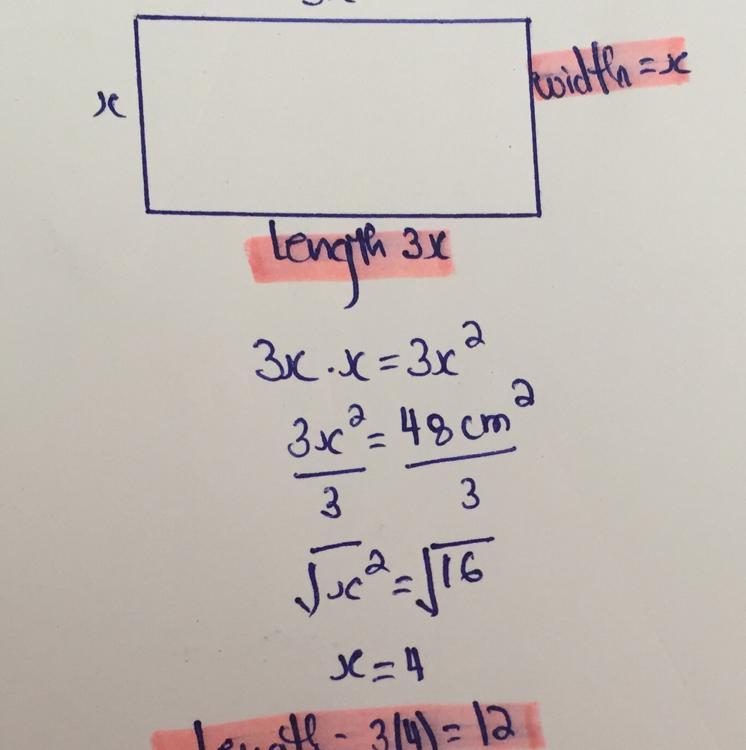 x
width = x
Length 3x
3x · x = 3x²
3x² = 48cm²
3 3
√x² = √16
x = 4
Length = 3(4) = 12